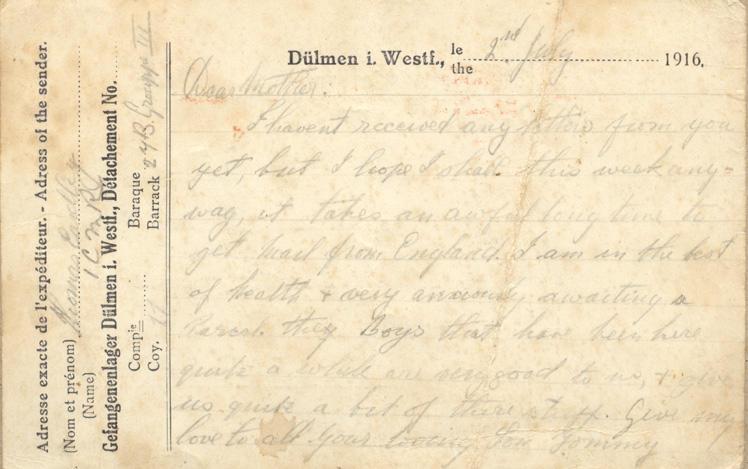 Adresse exacte de l'expéditeur. - Adress of the sender.
(Nom et prénom) Thomas
(Name) 1 C M R
Gefangenenlager Dülmen i. Westf., Détachement No.
Compie Baraque
Coy. 11 Barrack 24B Grouppe III
Dülmen i. Westf., le the 2nd July 1916.
Dear Mother:
I havent received any letters from you
yet, but I hope I shall this week any-
way, it takes an awful long time to
get mail from England. I am in the best
of health & very anxiously awaiting a
Parcel. they Boys that have been here
quite a while are very good to us, & give
us quite a bit of there stuff. Give my
love to all Your loving Son Tommy